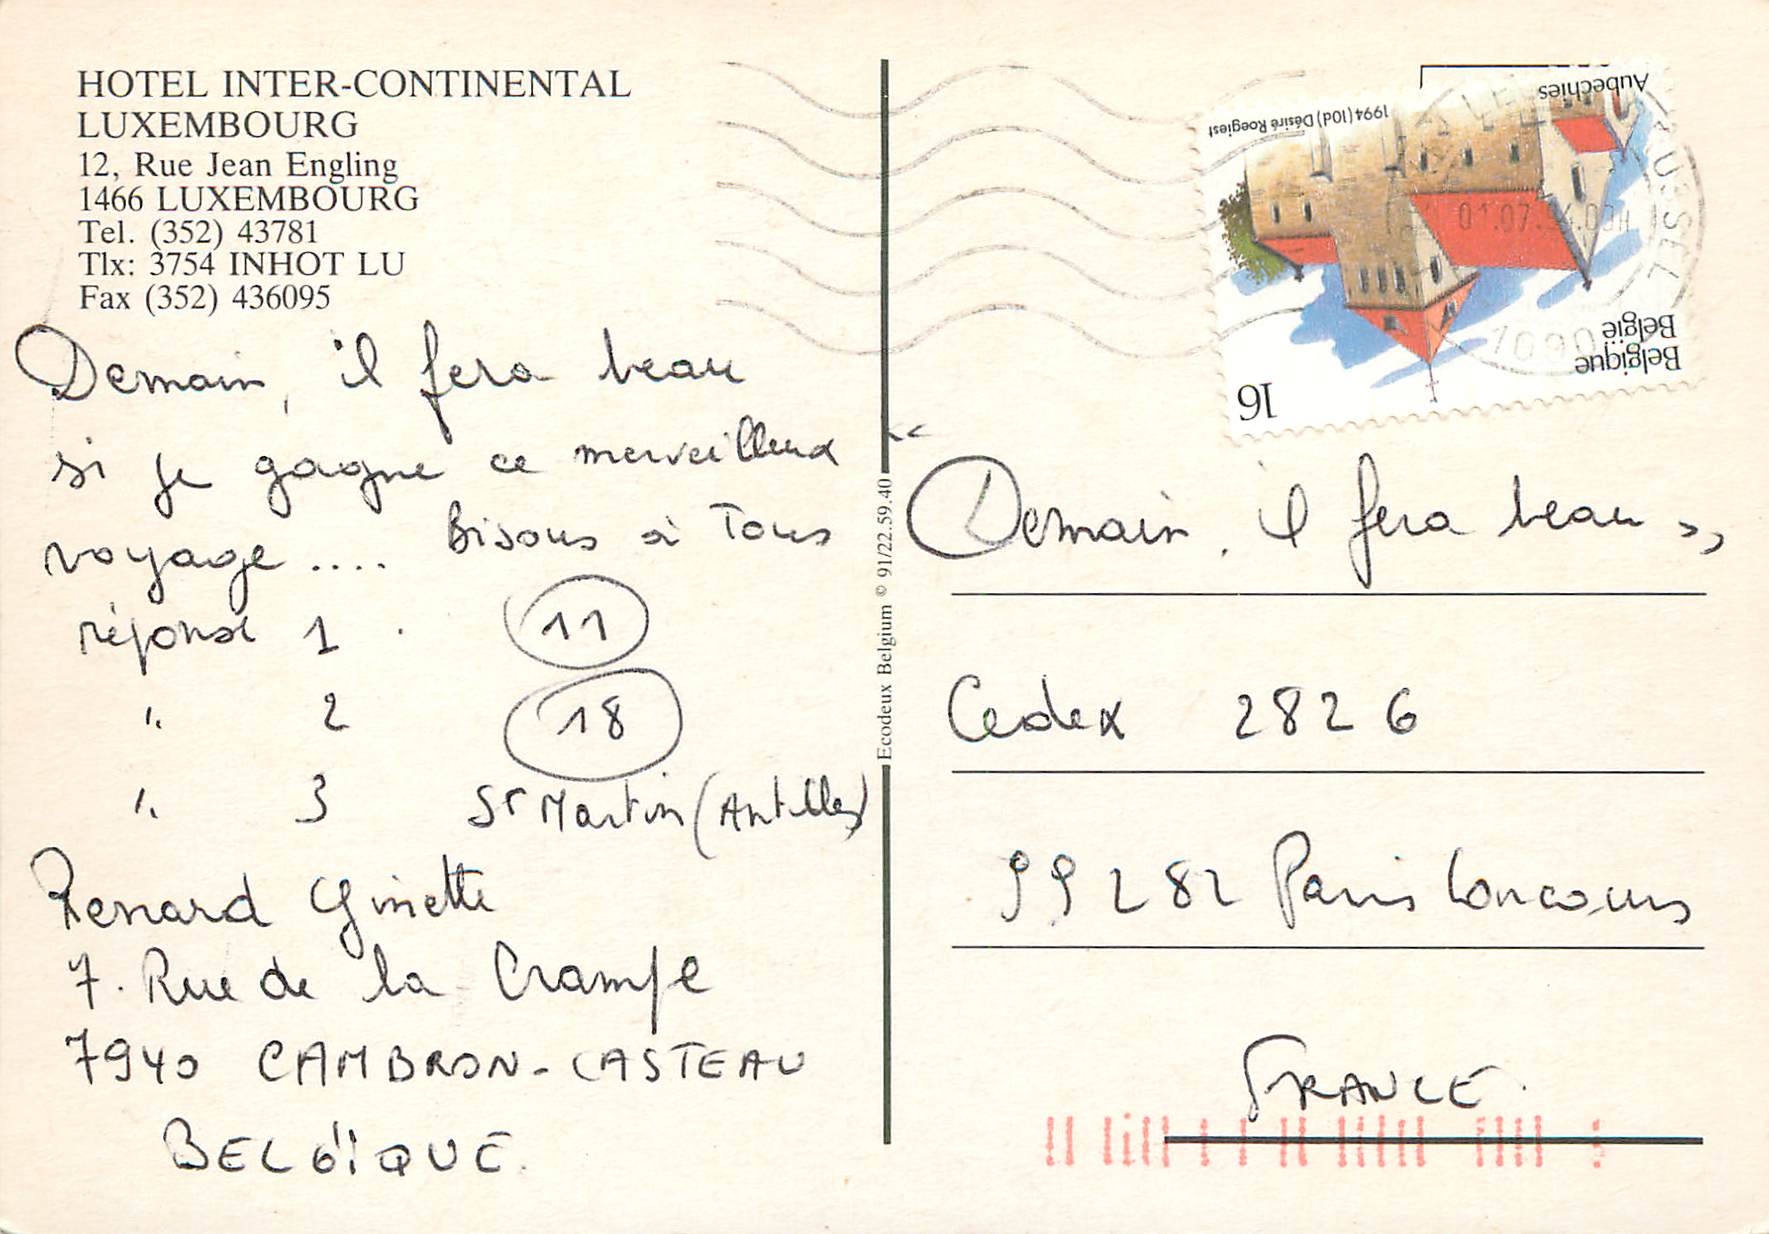 HOTEL INTER-CONTINENTAL
LUXEMBOURG
12, Rue Jean Engling
1466 LUXEMBOURG
Tel. (352) 43781
Tlx: 3754 INHOT LU
Fax (352) 436095
Demain, il fera beau
si je gagne ce merveilleux
voyage .... Bisous à Tous
réponse 1 11
". 2 18
". 3 St Martin (Antilles)
Renard Ginette
7. Rue de la Crampe
7940 CAMBRON-CASTEAU
BELGIQUE.
Ecodeux Belgium © 91/22.59.40
Aubechies
1994 (10d) Désiré Roegiest
01.07.94
1090
België
Belgique
16
"Demain, il fera beau"
Cedex 2826
99282 Paris Concours
FRANCE.